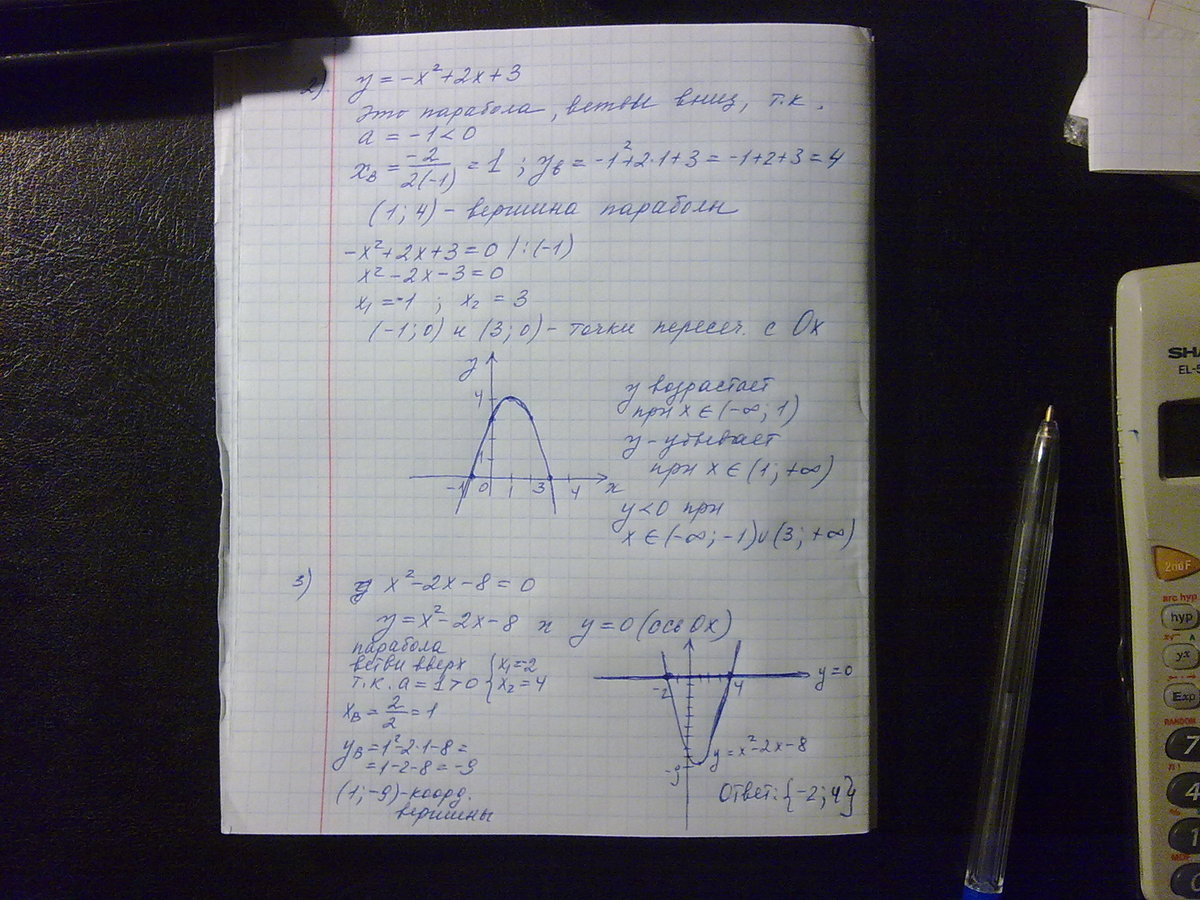 2) y = -x² + 2x + 3
Это парабола, ветви вниз, т.к.
a = -1 < 0
x_в = -2/2(-1) = 1 ; y_в = -1² + 2·1 + 3 = -1 + 2 + 3 = 4
(1; 4) - вершина параболы
-x² + 2x + 3 = 0 /:(-1)
x² - 2x - 3 = 0
x₁ = -1 ; x₂ = 3
(-1; 0) и (3; 0) - точки пересеч. с Ox
y
4
1
-1 0 1 3 4 x
y возрастает
при x ∈ (-∞; 1)
y - убывает
при x ∈ (1; +∞)
y < 0 при
x ∈ (-∞; -1) ∪ (3; +∞)
3) x² - 2x - 8 = 0
y = x² - 2x - 8 и y = 0 (ось Ox)
парабола
ветви вверх { x₁ = -2
т.к. a = 1 > 0 { x₂ = 4
x_в = 2/2 = 1
y_в = 1² - 2·1 - 8 =
= 1 - 2 - 8 = -9
(1; -9) - коорд.
вершины
y = 0
-2 4
y = x² - 2x - 8
-9
Ответ: {-2; 4}
SHA
EL-5
2ndF
arc hyp
hyp
yˣ
Exp
RANDOM
7
4
1
0